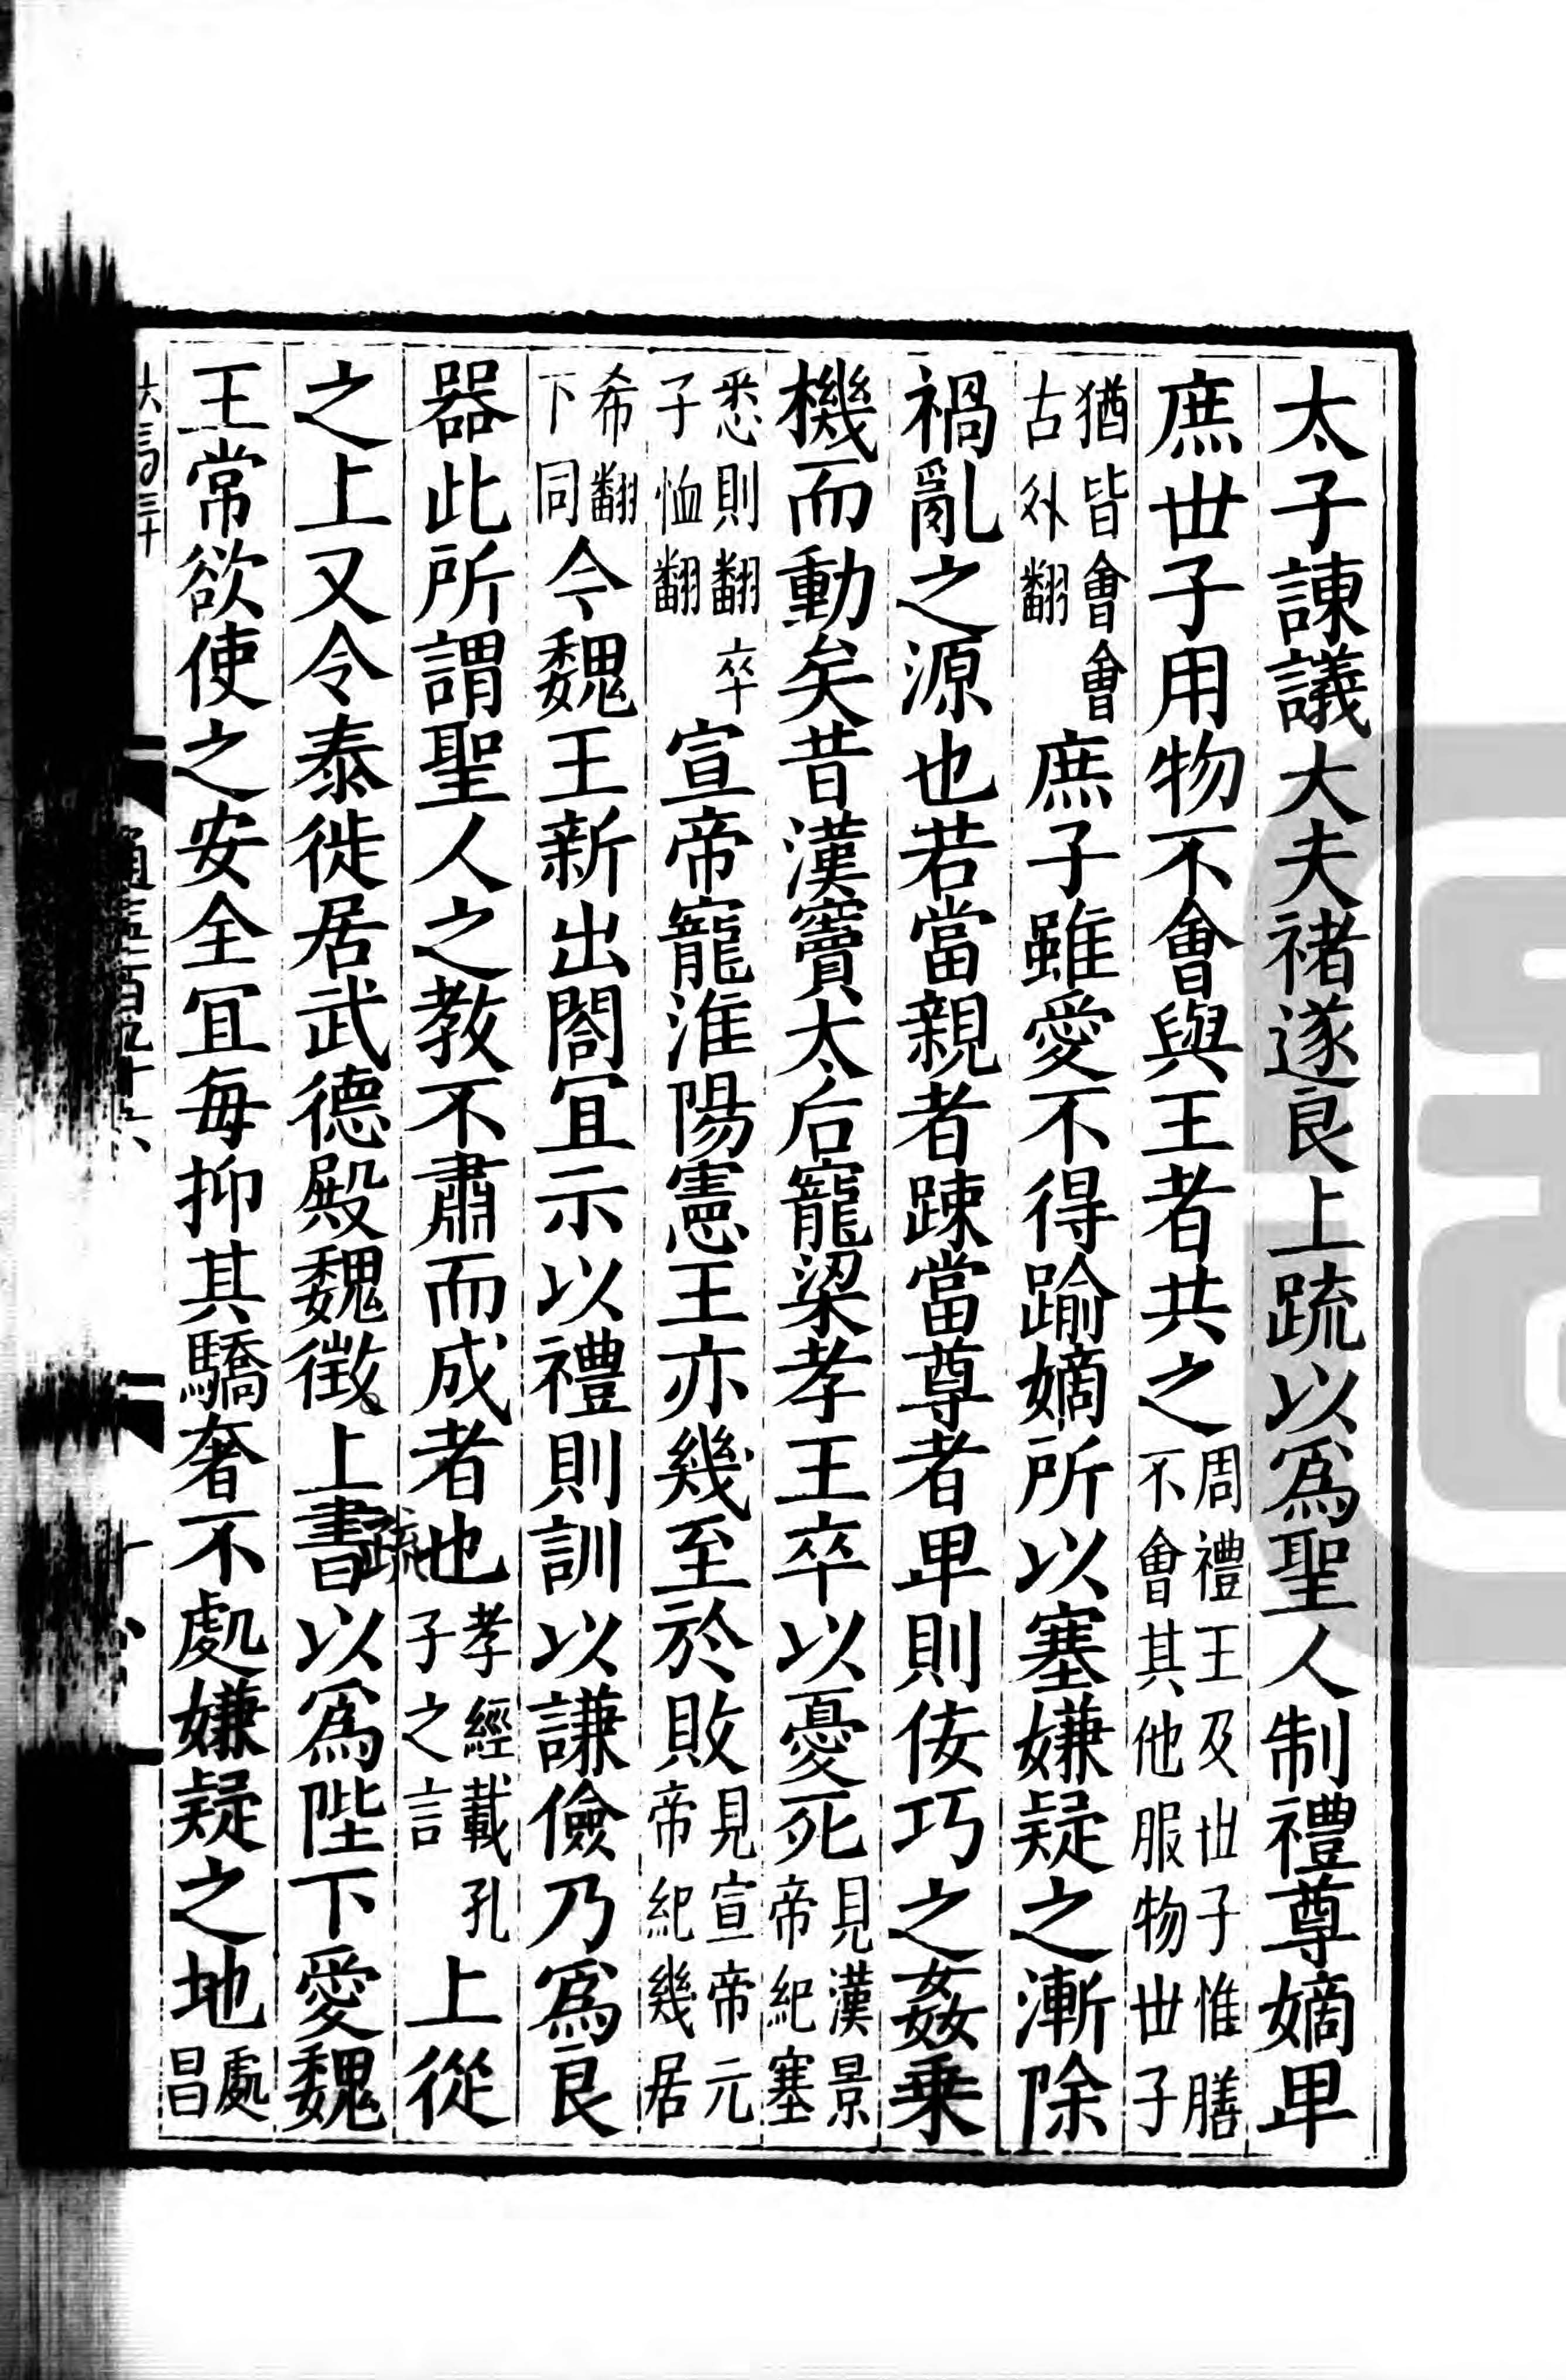 太子諫議大夫褚遂良上疏以爲聖人制禮尊嫡卑
庶世子用物不會與王者共之周禮王及世子惟膳不會其他服物世子
猶皆會會古外翻庶子雖愛不得踰嫡所以塞嫌疑之漸除
禍亂之源也若當親者踈當尊者卑則佞巧之姦乗
機而動矣昔漢竇太后寵梁孝王卒以憂死見漢景帝紀塞
悉則翻卒子恤翻宣帝寵淮陽憲王亦幾至於敗見宣帝元帝紀幾居
希翻下同今魏王新出閤宜示以禮則訓以謙儉乃爲良
器此所謂聖人之教不肅而成者也孝經載孔子之言上從
之上又令泰徙居武德殿魏徵上書疏以爲陛下愛魏
王常欲使之安全宜每抑其驕奢不處嫌疑之地處昌